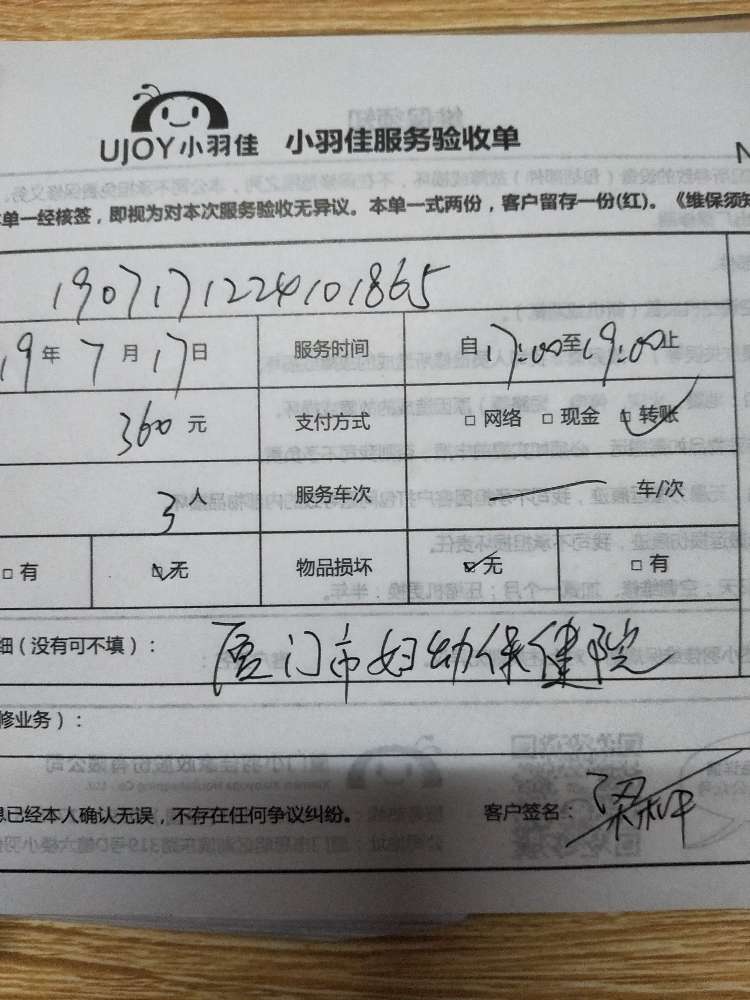 UJOY小羽佳 小羽佳服务验收单
单一经核签，即视为对本次服务验收无异议。本单一式两份，客户留存一份(红)。《维保须知
1907171224101865
19年7月17日 服务时间 自17:00至19:00止
360元 支付方式 □网络 □现金 ☑转账
3人 服务车次 — 车/次
□有 ☑无 物品损坏 ☑无 □有
细(没有可不填)： 厦门市妇幼保健院
修业务)：
息已经本人确认无误，不存在任何争议纠纷。 客户签名：